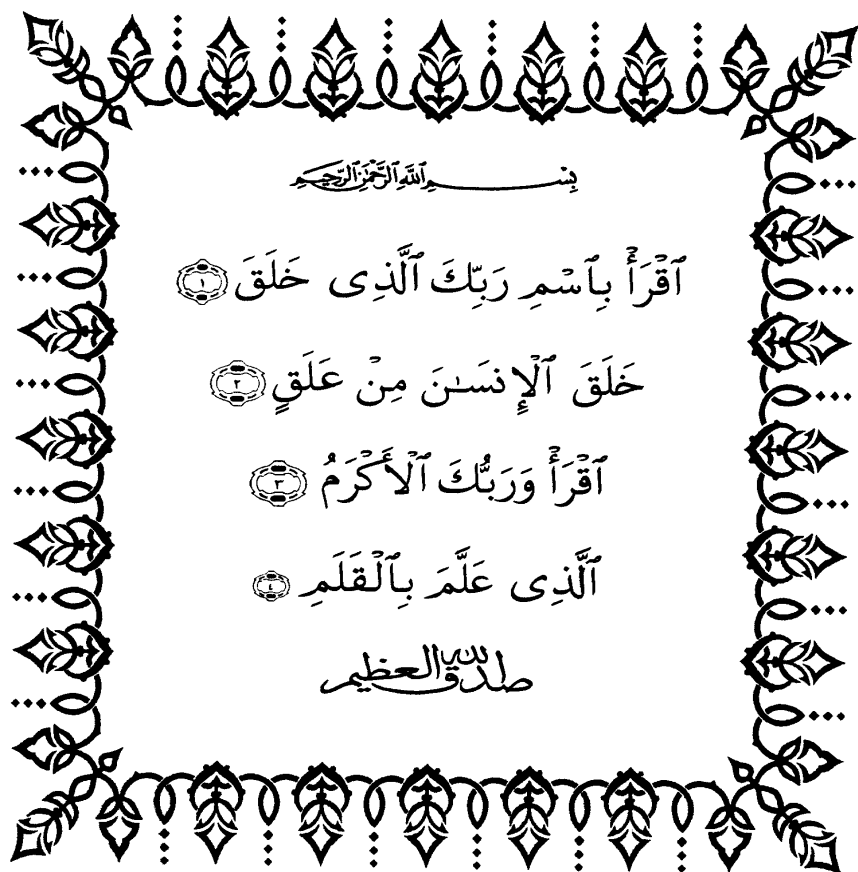 بِسْمِ ٱللَّهِ ٱلرَّحْمَٰنِ ٱلرَّحِيمِ
ٱقْرَأْ بِٱسْمِ رَبِّكَ ٱلَّذِى خَلَقَ ١
خَلَقَ ٱلْإِنسَـٰنَ مِنْ عَلَقٍ ٢
ٱقْرَأْ وَرَبُّكَ ٱلْأَكْرَمُ ٣
ٱلَّذِى عَلَّمَ بِٱلْقَلَمِ ٤
صدق الله العظيم